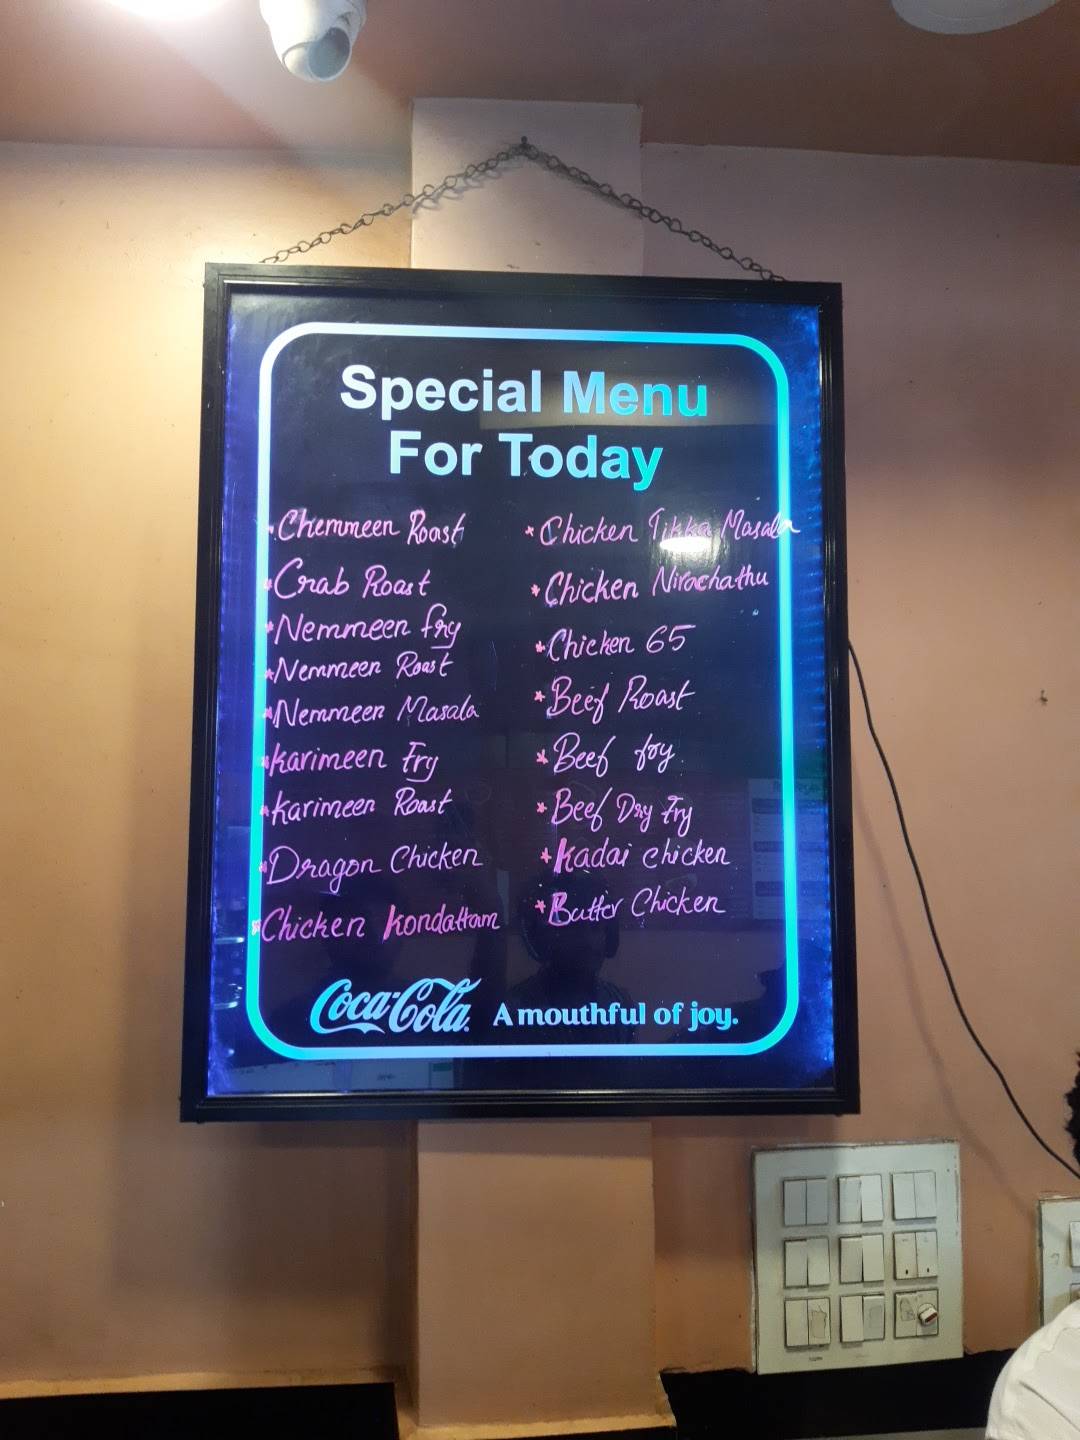 Special Menu
For Today
* Chemmeen Roast
* Crab Roast
* Nemmeen fry
* Nemmeen Roast
* Nemmeen Masala
* Karimeen Fry
* Karimeen Roast
* Dragon Chicken
* Chicken Kondattam
* Chicken Tikka Masala
* Chicken Nirachathu
* Chicken 65
* Beef Roast
* Beef fry
* Beef Dry Fry
* Kadai chicken
* Butter Chicken
Coca-Cola A mouthful of joy.